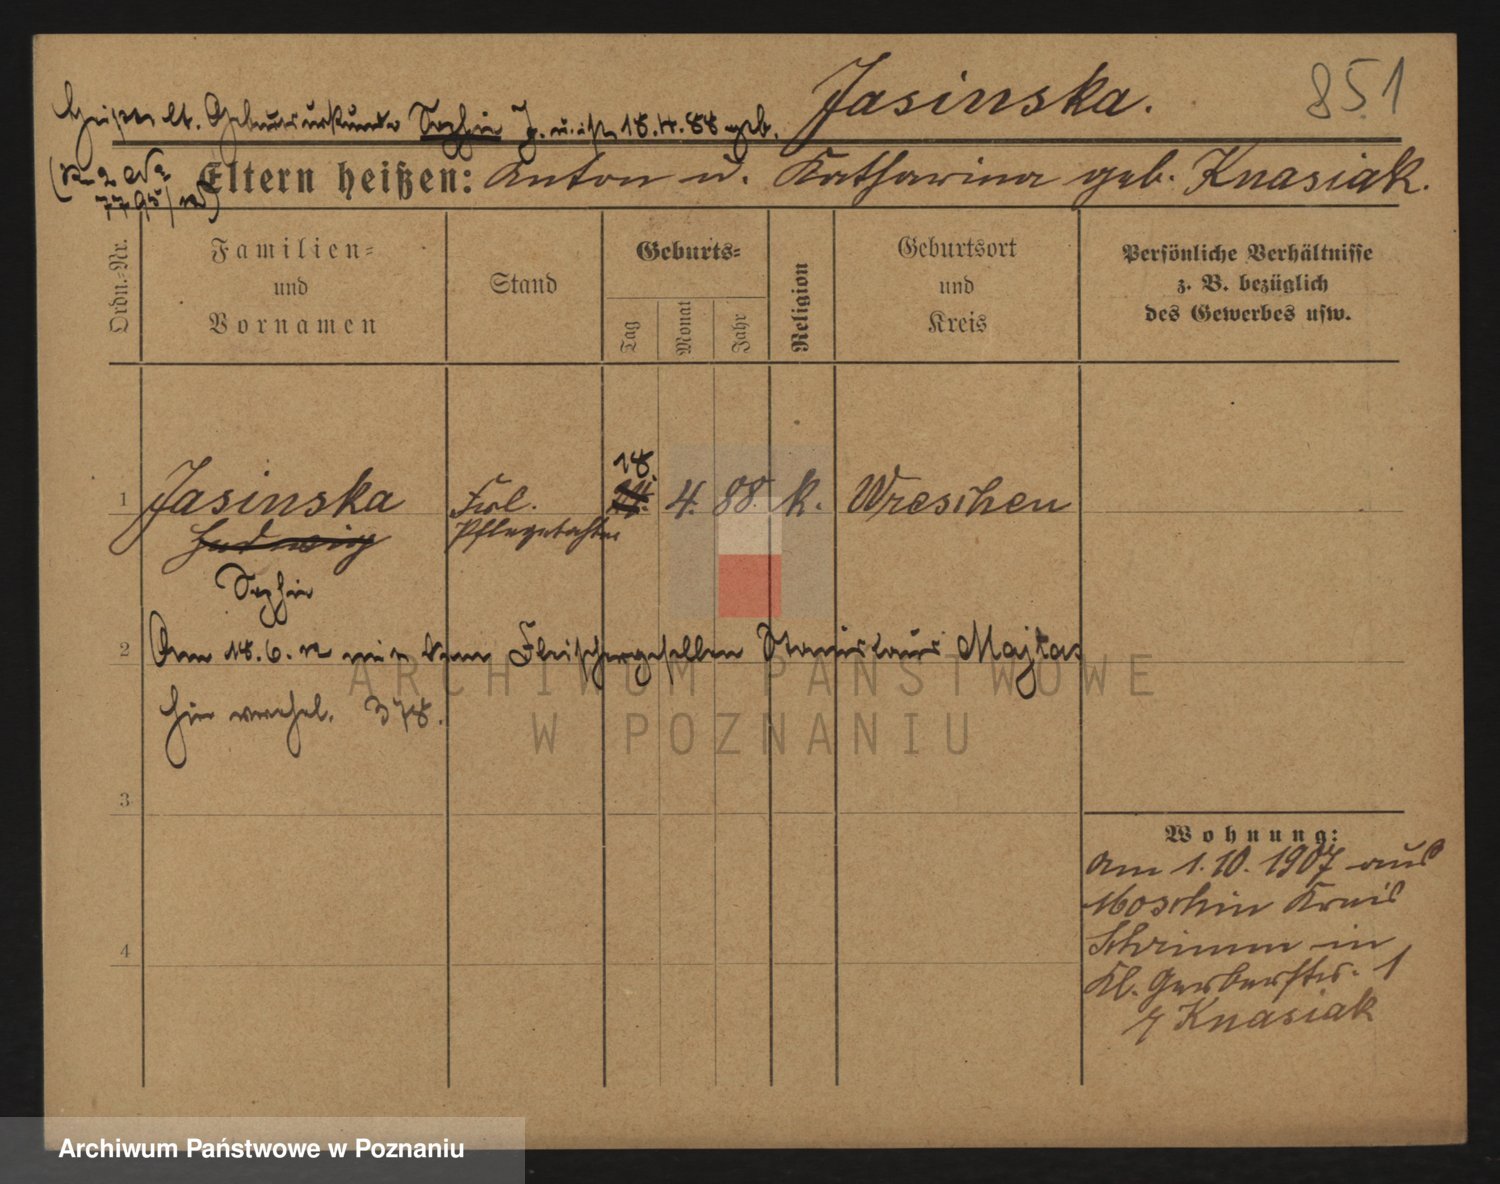 Heißt lt. Geburtsurkunde Sophie J. u. ist 18.4.88 geb. Jasinska. 851
Eltern heißen: Anton u. Katharina geb. Knasiak.
Ordn.-Nr.
Familien-
und
Vornamen
Stand
Geburts-
Tag
Monat
Jahr
Religion
Geburtsort
und
Kreis
Persönliche Verhältnisse
z. B. bezüglich
des Gewerbes usw.
18.
1 Jasinska Frl. 4. 88. k. Wreschen
Hedwig Pflegetochter
Sophie
2 Am 18.6. mit dem Fleischergesellen Stanislaus Majtas
hier verehel. 378.
3
Wohnung:
am 1.10.1907 aus
Moschin Kreis
Schrimm in
4
Kl. Gerberstr. 1
Knasiak
ARCHIWUM PAŃSTWOWE
W POZNANIU
Archiwum Państwowe w Poznaniu